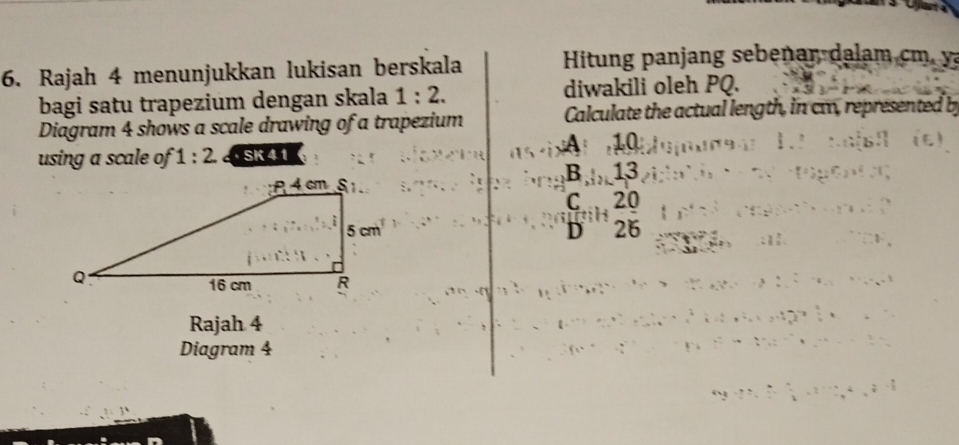 6. Rajah 4 menunjukkan lukisan berskala
bagi satu trapezium dengan skala 1 : 2.
Diagram 4 shows a scale drawing of a trapezium
using a scale of 1 : 2. SK 4.1
P 4 cm S
5 cm
Q
16 cm
R
Rajah 4
Diagram 4
Hitung panjang sebenar, dalam cm,
diwakili oleh PQ.
Calculate the actual length, in cm, represented
A 10
B 13
C 20
D 26